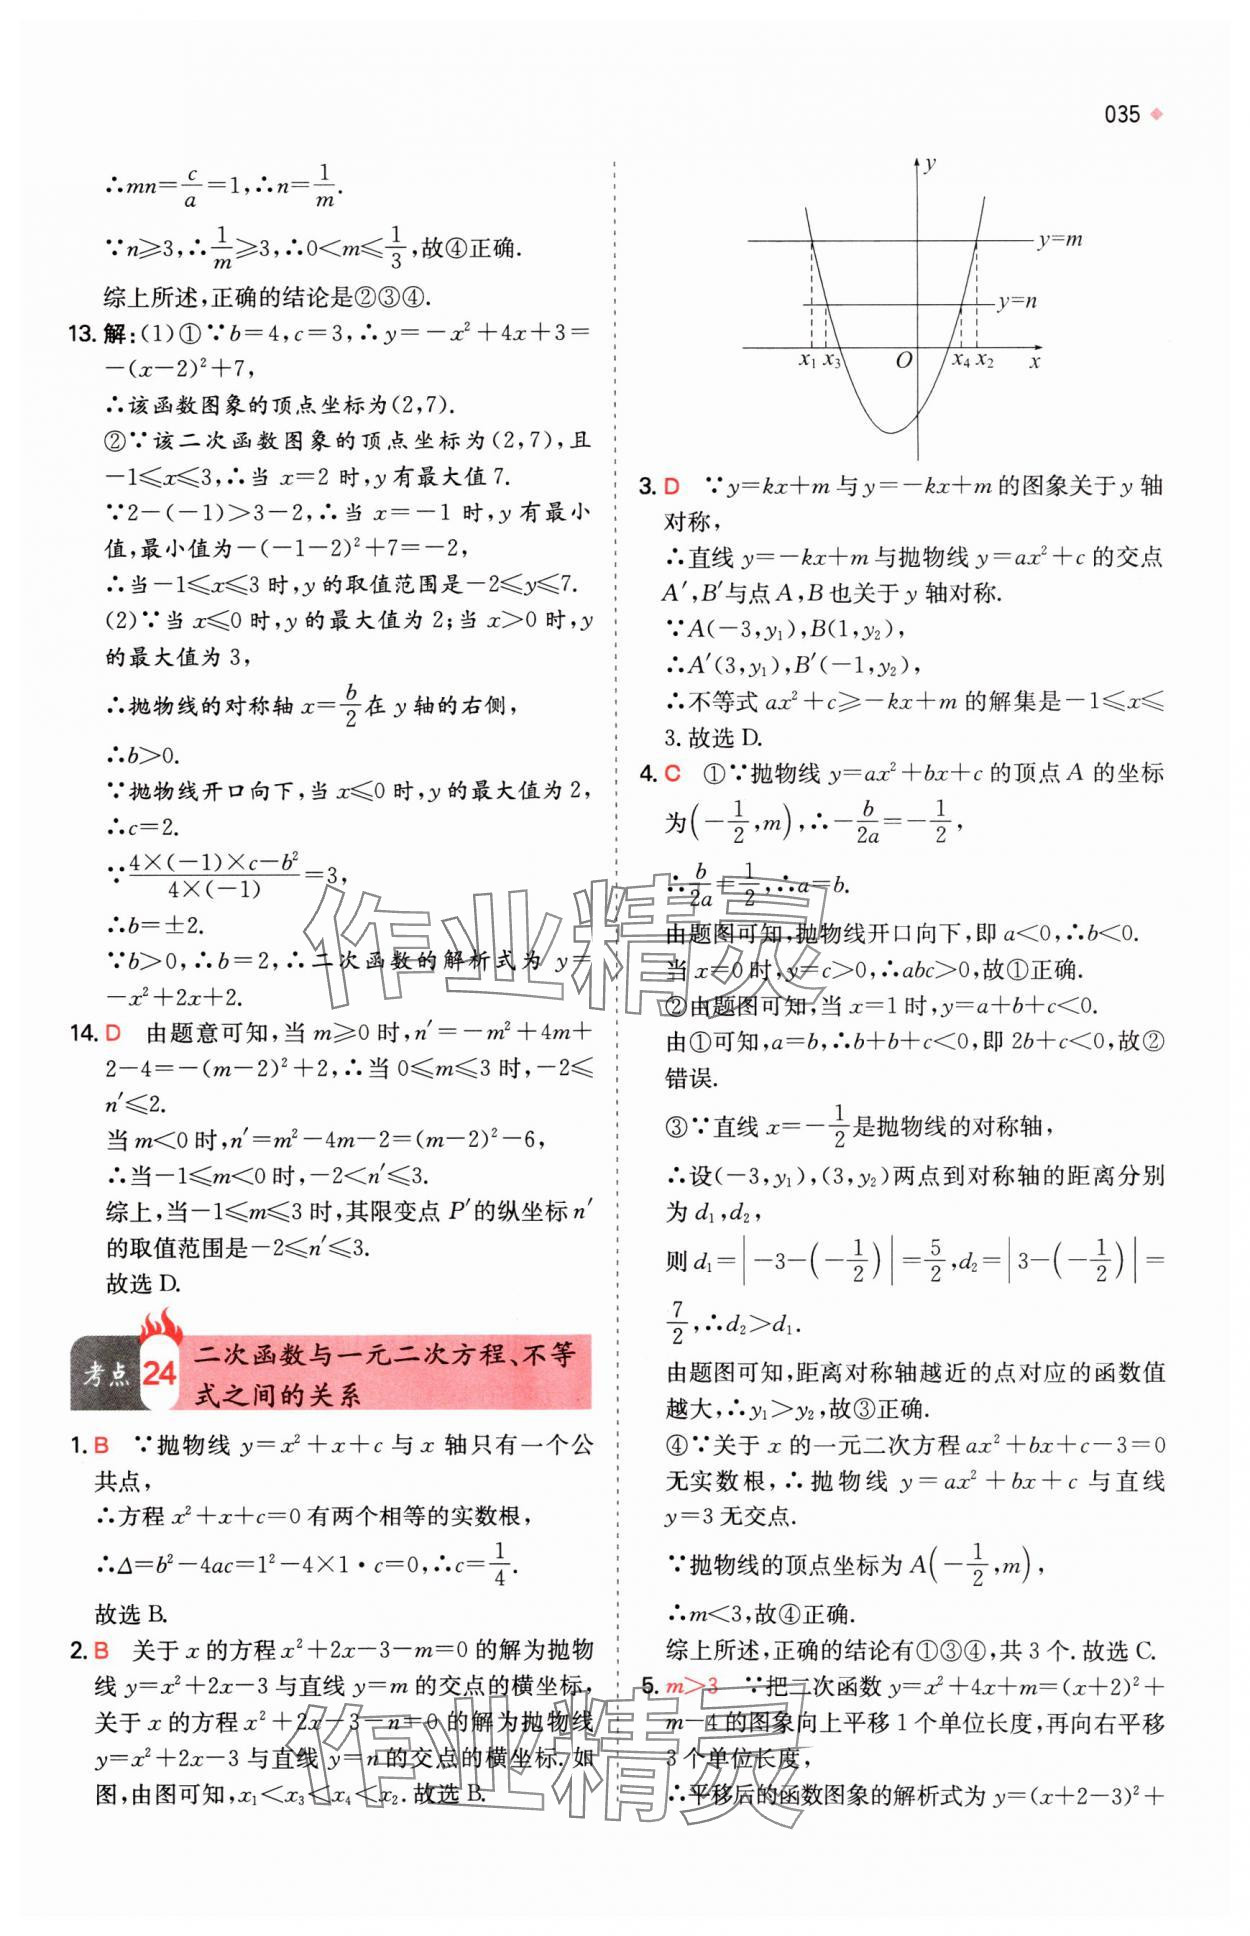 035
∴mn=c/a=1,∴n=1/m.
∵n≥3,∴1/m≥3,∴0<m≤1/3,故④正确.
综上所述,正确的结论是②③④.
13. 解:(1)①∵b=4,c=3,∴y=-x²+4x+3=
-(x-2)²+7,
∴该函数图象的顶点坐标为(2,7).
②∵该二次函数图象的顶点坐标为(2,7),且
-1≤x≤3,∴当 x=2 时,y有最大值7.
∵2-(-1)>3-2,∴当 x=-1 时,y有最小
值,最小值为-(-1-2)²+7=-2,
∴当-1≤x≤3时,y的取值范围是-2≤y≤7.
(2)∵当 x≤0时,y的最大值为2;当x>0时,y
的最大值为3,
∴抛物线的对称轴 x=b/2在 y轴的右侧,
∴b>0.
∵抛物线开口向下,当x≤0时,y的最大值为2,
∴c=2.
∵4×(-1)×c-b²/4×(-1)=3,
∴b=±2.
∵b>0,∴b=2,∴二次函数的解析式为 y=
-x²+2x+2.
14. D 由题意可知,当m≥0时,n′=-m²+4m+
2-4=-(m-2)²+2,∴当0≤m≤3时,-2≤
n′≤2.
当m<0时,n′=m²-4m-2=(m-2)²-6,
∴当-1≤m<0时,-2<n′≤3.
综上,当-1≤m≤3时,其限变点 P′的纵坐标n′
的取值范围是-2≤n′≤3.
故选D.
考点 24 二次函数与一元二次方程、不等
式之间的关系
1. B ∵抛物线 y=x²+x+c 与 x 轴只有一个公
共点,
∴方程 x²+x+c=0有两个相等的实数根,
∴Δ=b²-4ac=1²-4×1·c=0,∴c=1/4.
故选B.
2. B 关于 x 的方程x²+2x-3-m=0的解为抛物
线y=x²+2x-3与直线y=m的交点的横坐标,
关于x的方程x²+2x-3-n=0的解为抛物线
y=x²+2x-3与直线 y=n的交点的横坐标.如
图,由图可知,x₁<x₃<x₄<x₂.故选B.
y
y=m
y=n
x₁ x₃ O x₄ x₂ x
3. D ∵y=kx+m与y=-kx+m的图象关于y轴
对称,
∴直线 y=-kx+m与抛物线y=ax²+c的交点
A′,B′与点A,B也关于y轴对称.
∵A(-3,y₁),B(1,y₂),
∴A′(3,y₁),B′(-1,y₂),
∴不等式 ax²+c≥-kx+m的解集是-1≤x≤
3.故选D.
4. C ①∵抛物线 y=ax²+bx+c的顶点A的坐标
为(-1/2,m),∴-b/2a=-1/2,
∴b/2a=1/2,∴a=b.
由题图可知,抛物线开口向下,即a<0,∴b<0.
当x=0时,y=c>0,∴abc>0,故①正确.
②由题图可知,当x=1时,y=a+b+c<0.
由①可知,a=b,∴b+b+c<0,即2b+c<0,故②
错误.
③∵直线 x=-1/2是抛物线的对称轴,
∴设(-3,y₁),(3,y₂)两点到对称轴的距离分别
为d₁,d₂,
则d₁=|-3-(-1/2)|=5/2,d₂=|3-(-1/2)|=
7/2,∴d₂>d₁.
由题图可知,距离对称轴越近的点对应的函数值
越大,∴y₁>y₂,故③正确.
④∵关于x的一元二次方程ax²+bx+c-3=0
无实数根,∴抛物线 y=ax²+bx+c与直线
y=3无交点.
∵抛物线的顶点坐标为A(-1/2,m),
∴m<3,故④正确.
综上所述,正确的结论有①③④,共3个.故选C.
5. m>3 ∵把二次函数y=x²+4x+m=(x+2)²+
m-4的图象向上平移1个单位长度,再向右平移
3个单位长度,
∴平移后的函数图象的解析式为y=(x+2-3)²+
作业精灵
作业精灵